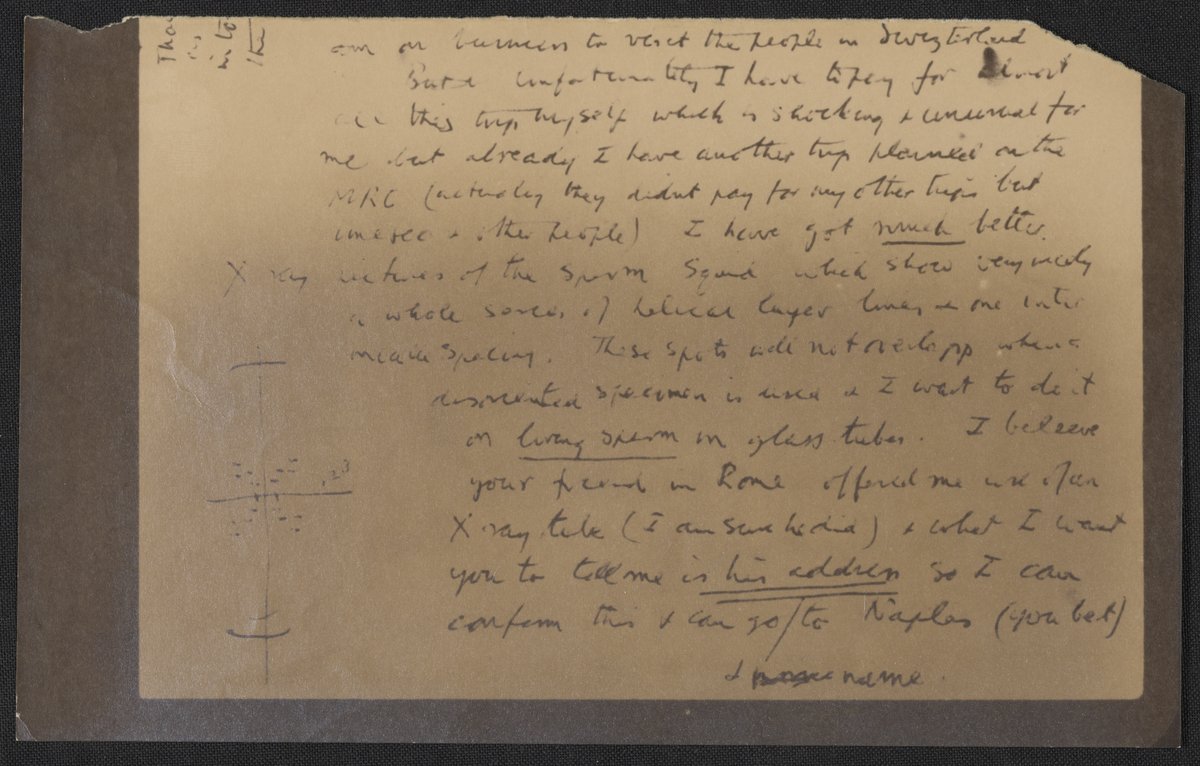 am on business to visit the people in Switzerland
But unfortunately I have to pay for almost
all this trip myself which is shocking & unusual for
me but already I have another trip planned on the
MRC (actually they didnt pay for my other trips but
unesco & other people) I have got much better
X ray pictures of the Sperm Squid which show very nicely
a whole series of helical layer lines & one inter
mediate spacing. These spots will not overlapp when a
disoriented specimen is used & I want to do it
on living sperm in glass tubes. I believe
your friend in Rome offered me use of an
X ray tube (I am sure he did) & what I want
you to tell me is his address so I can
confirm this & can go to Naples (you bet)
& name.